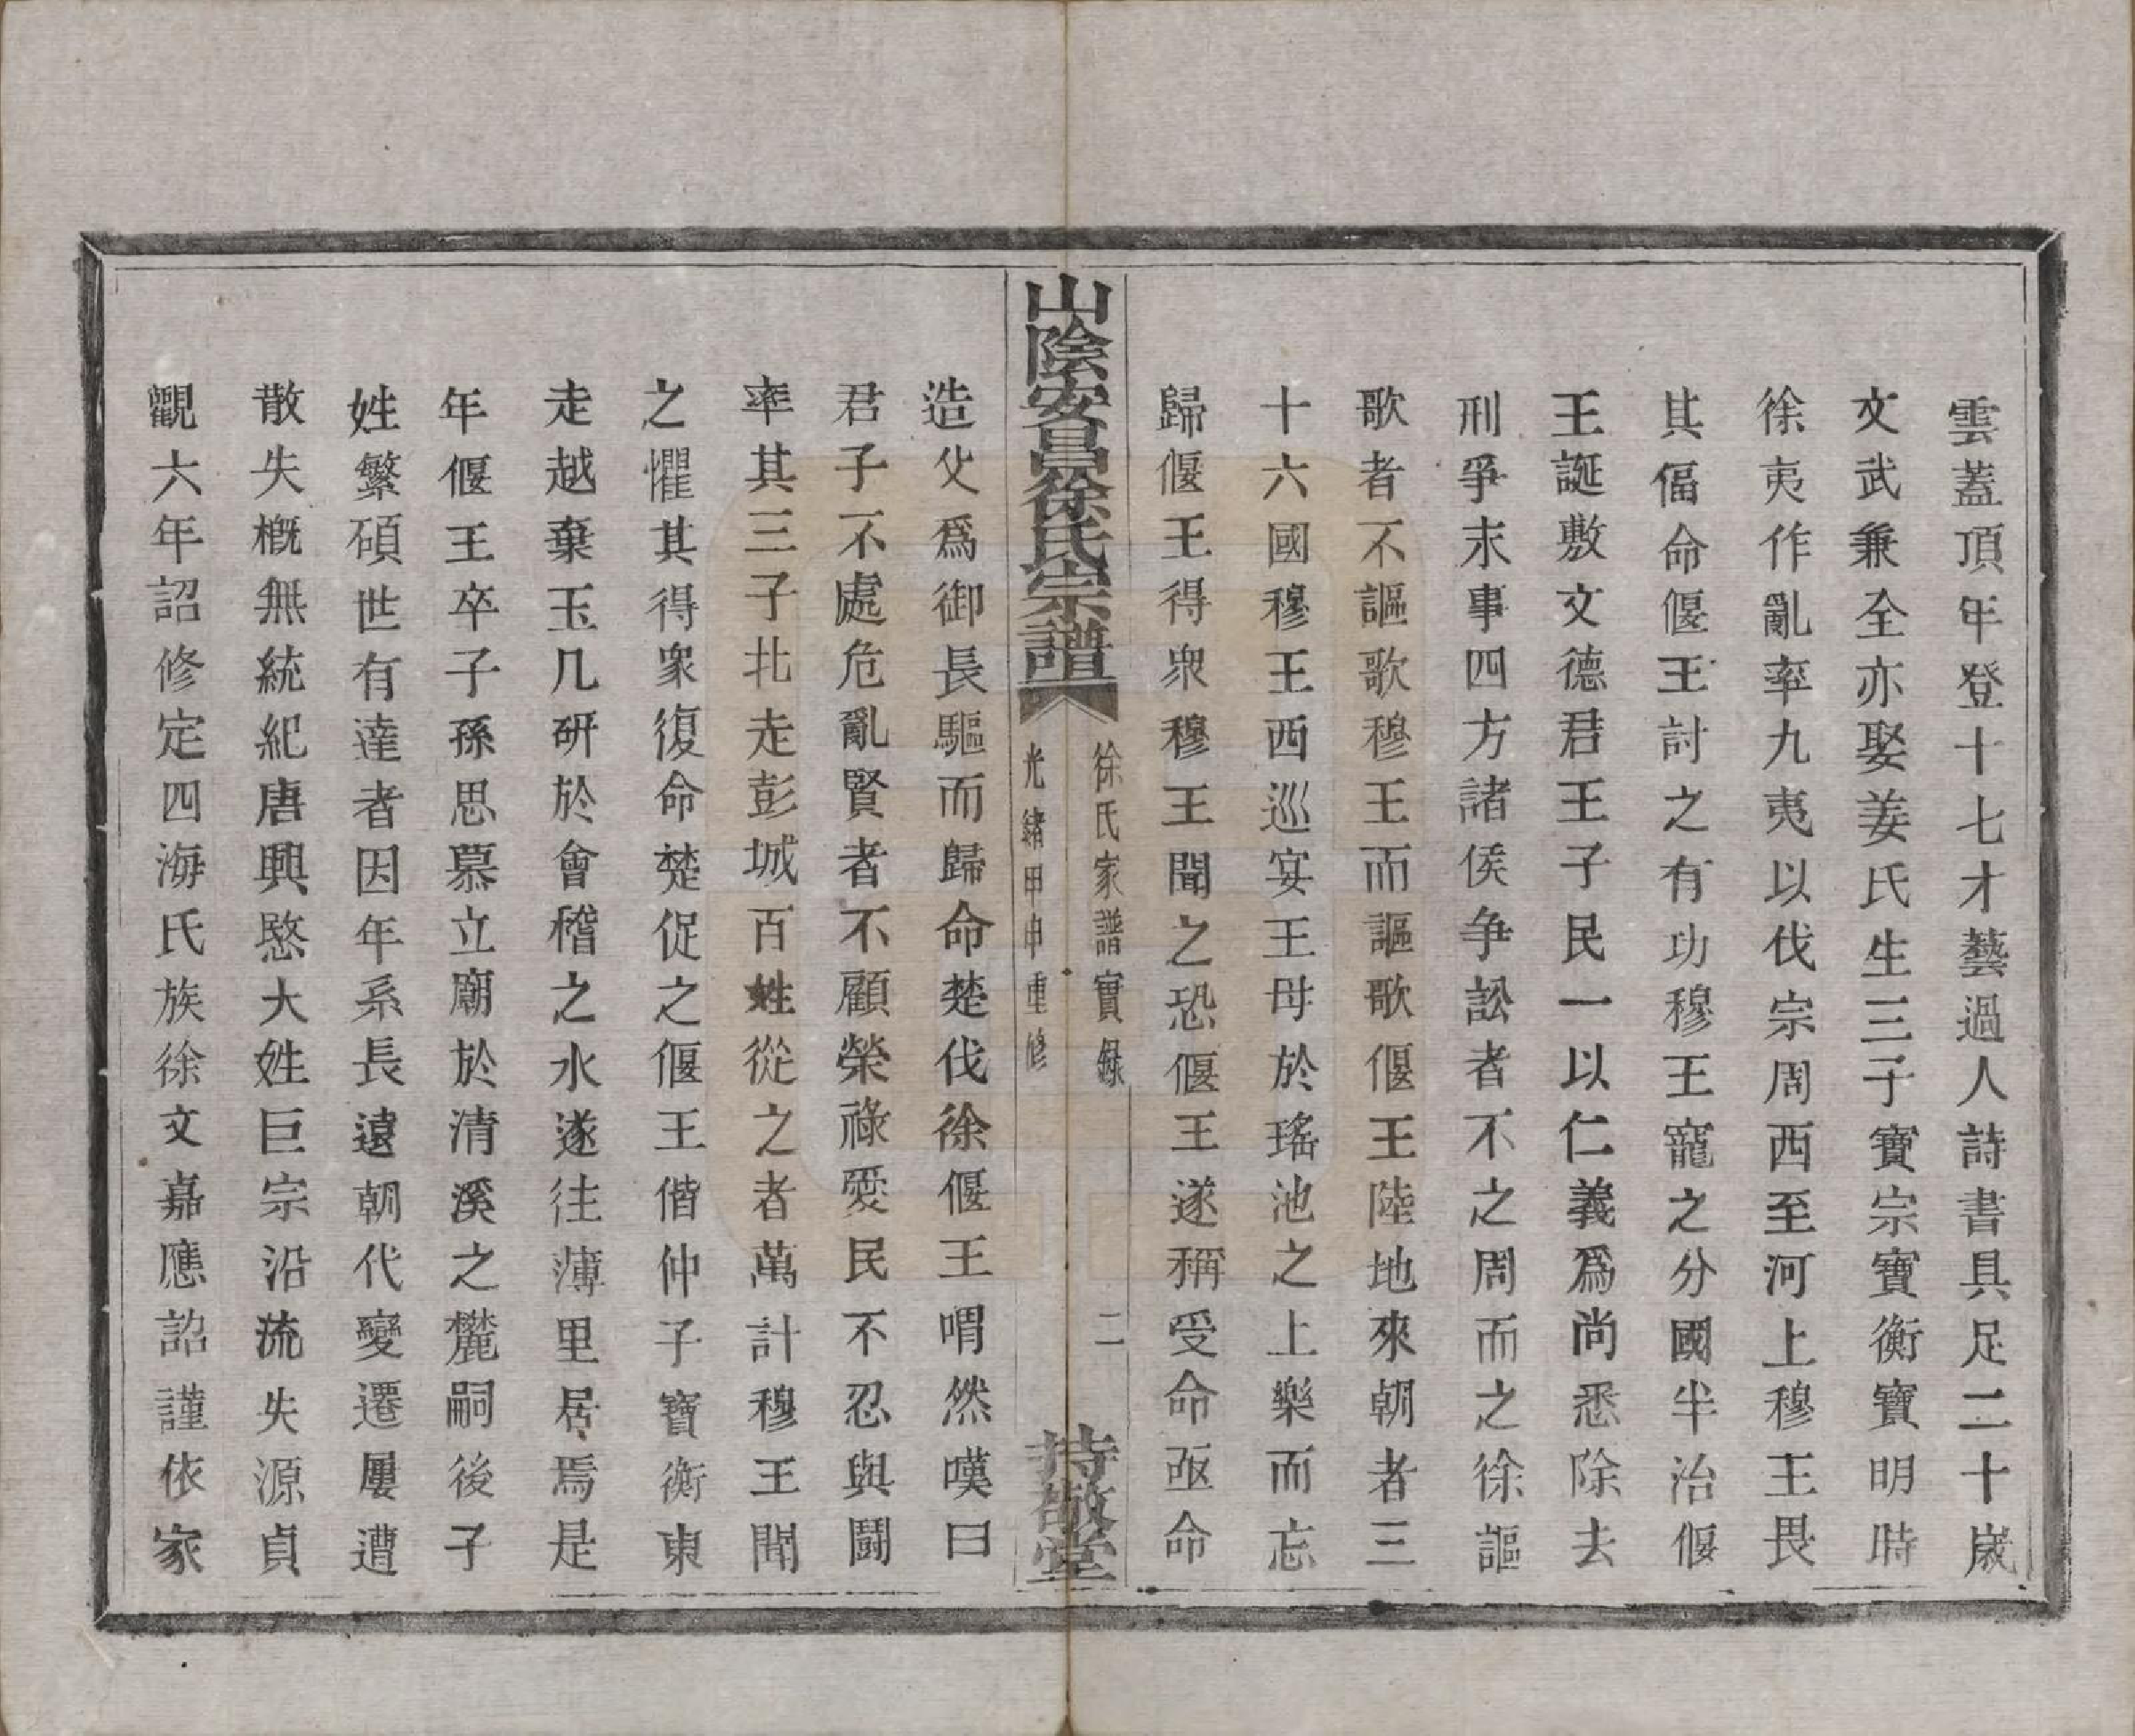 雲蓋頂年登十七才藝過人詩書具足二十歲
文武兼全亦娶姜氏生三子寶宗寶衡寶明時
徐夷作亂率九夷以伐宗周西至河上穆王畏
其偪命偃王討之有功穆王寵之分國半治偃
王誕敷文德君王子民一以仁義爲尚悉除去
刑爭末事四方諸侯争訟者不之周而之徐謳
歌者不謳歌穆王而謳歌偃王陸地來朝者三
十六國穆王西巡宴王母於瑤池之上樂而忘
歸偃王得衆穆王聞之恐偃王遂稱受命亟命
山陰安昌徐氏宗譜
徐氏家譜實錄
二
光緒甲申重修
持敬堂
造父爲御長驅而歸命楚伐徐偃王喟然嘆曰
君子不處危亂賢者不顧榮祿愛民不忍與鬪
率其三子北走彭城百姓從之者萬計穆王聞
之懼其得衆復命楚促之偃王偕仲子寶衡東
走越棄玉几研於會稽之水遂往薄里居焉是
年偃王卒子孫思慕立廟於清溪之麓嗣後子
姓繁碩世有達者因年系長遠朝代變遷屢遭
散失概無統紀唐興愍大姓巨宗沿流失源貞
觀六年詔修定四海氏族徐文嘉應詔謹依家